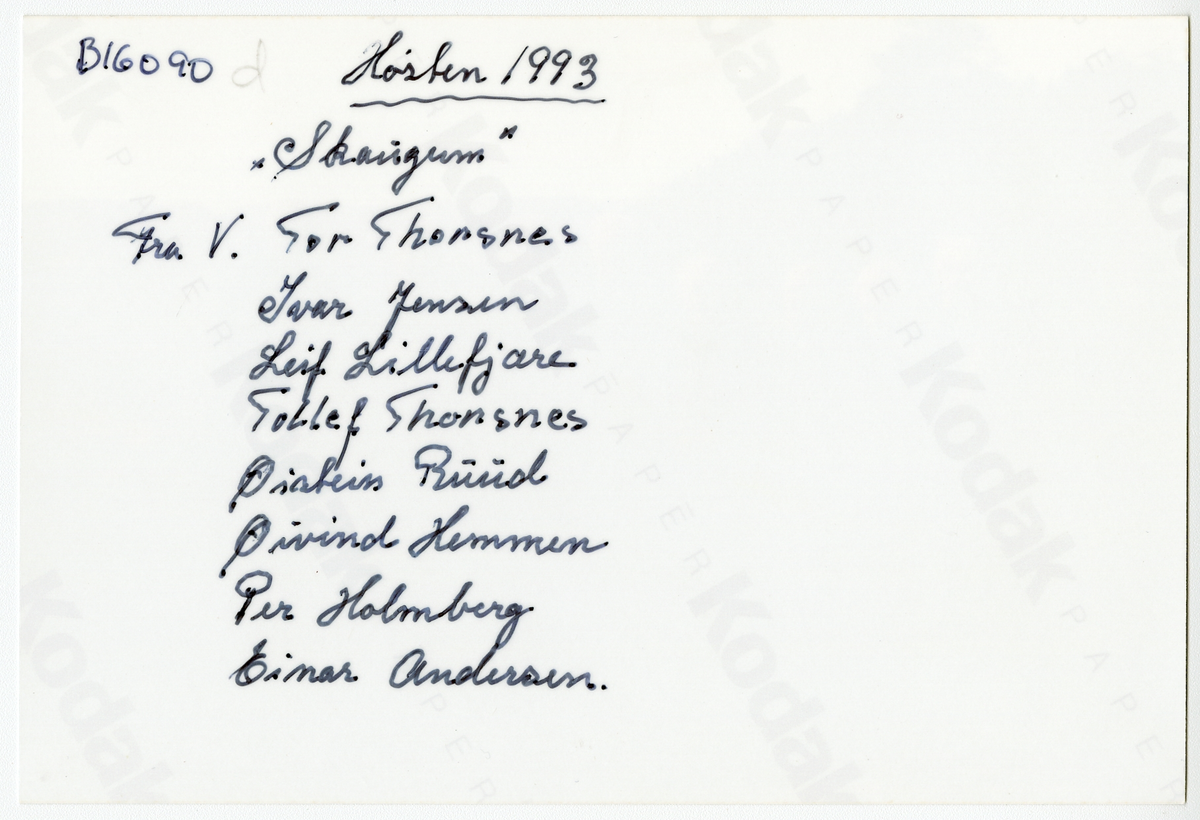 B16090 d Hösten 1993
„Skaugum"
Fra V. Tor Thorsnes
Ivar Jensen
Leif Lillefjære
Tollef Thorsnes
Øistein Ruud
Øivind Hemmen
Per Holmberg
Einar Andersen.
Kodak PAPER